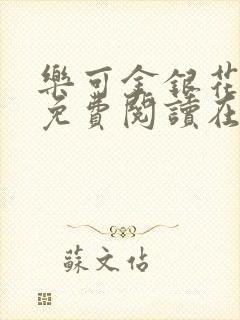 樂可金銀花
免費閱讀在
蘇文佔